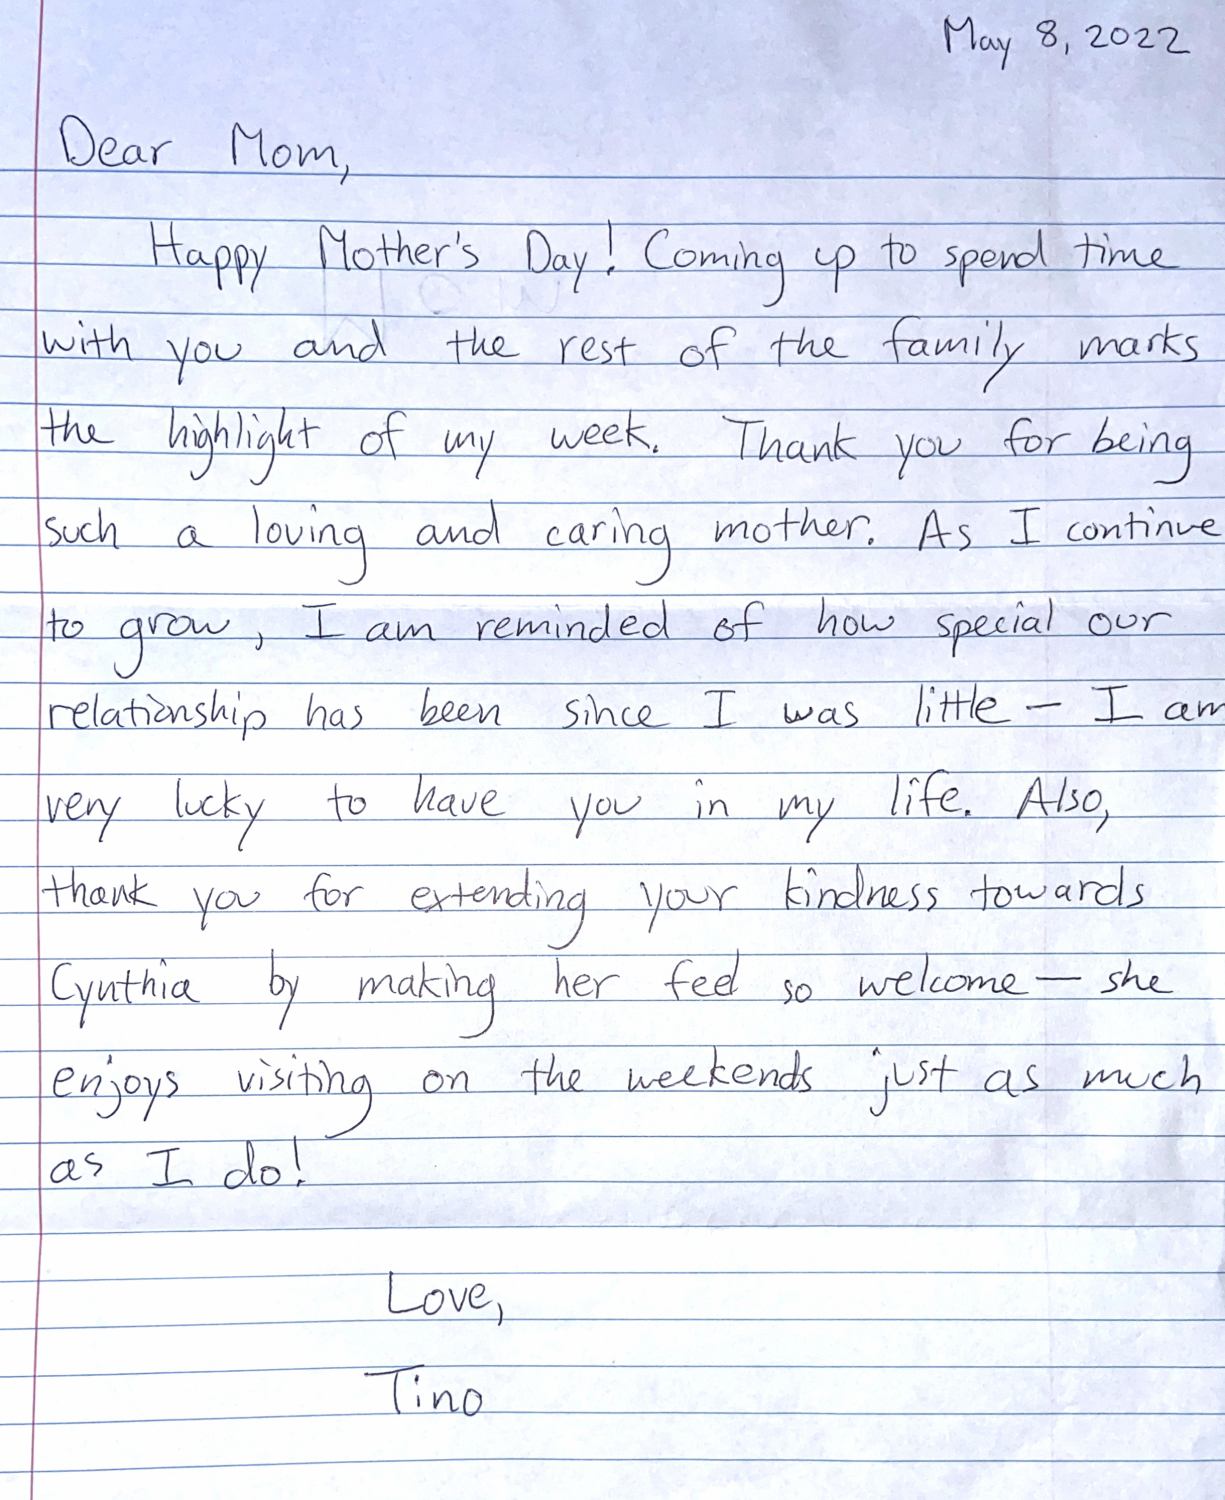 May 8, 2022
Dear Mom,
Happy Mother's Day! Coming up to spend time
with you and the rest of the family marks
the highlight of my week. Thank you for being
such a loving and caring mother. As I continue
to grow, I am reminded of how special our
relationship has been since I was little – I am
very lucky to have you in my life. Also,
thank you for extending your kindness towards
Cynthia by making her feel so welcome – she
enjoys visiting on the weekends just as much
as I do!
Love,
Tino